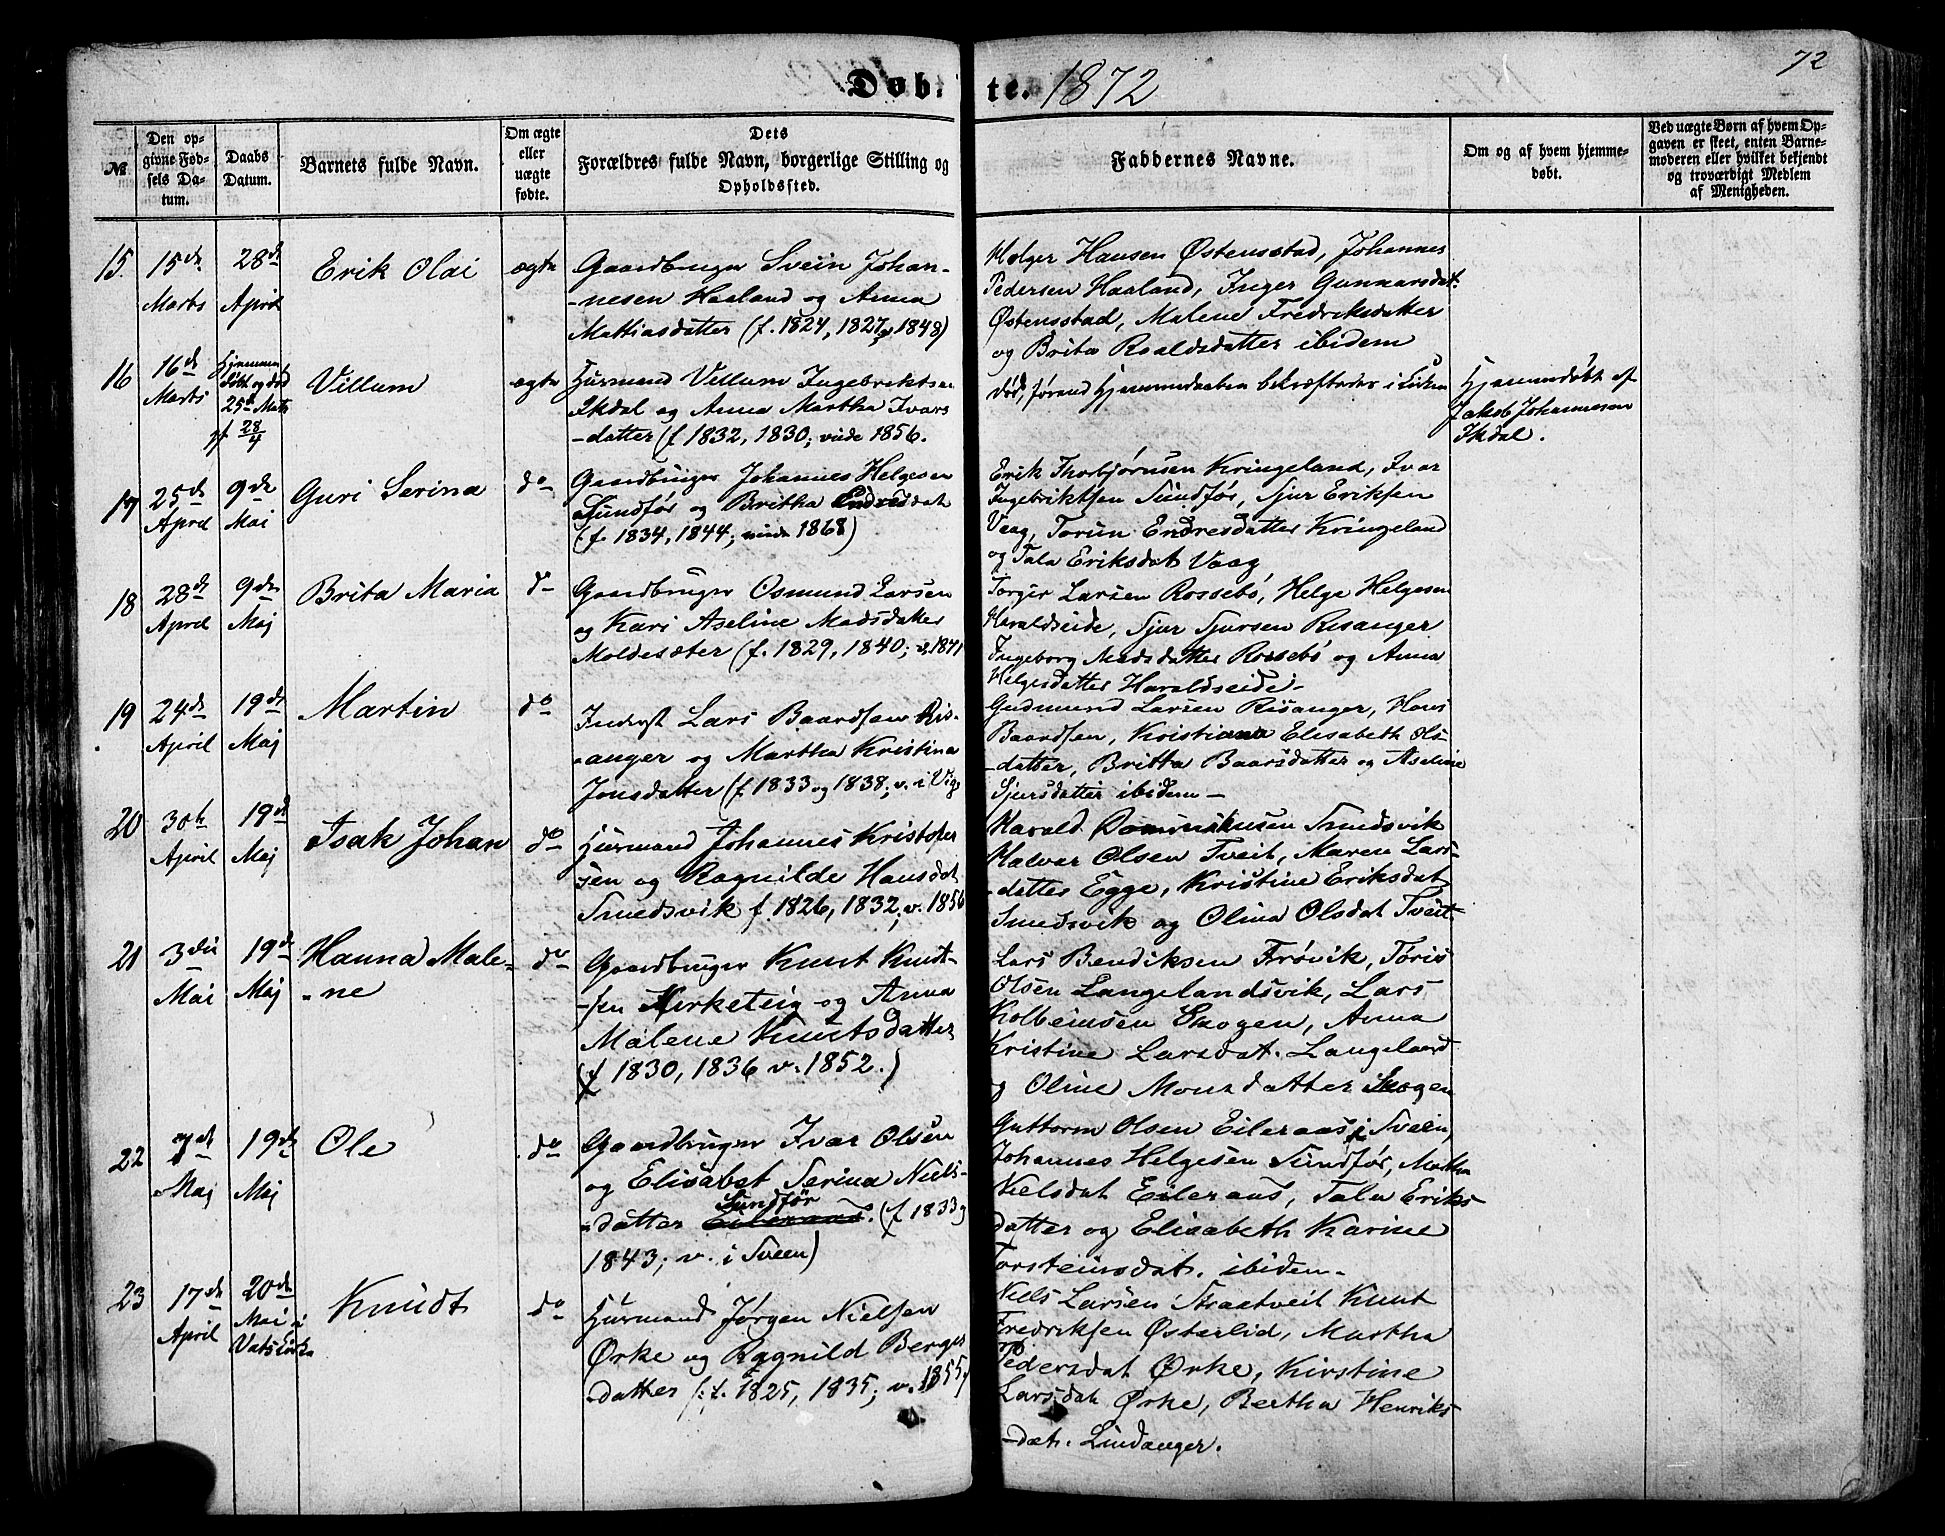 Døb-
te. 1872
72
No.
Den op-
givne Fød-
sels Da-
tum.
Daabs
Datum.
Barnets fulde Navn.
Om ægte
eller
uægte
fødte.
Dets
Forældres fulde Navn, borgerlige Stilling og
Opholdssted.
Faddernes Navne.
Om og af hvem hjemme-
døbt.
Ved uægte Børn af hvem Op-
gaven er skeet, enten Barne-
moderen eller hvilket bekjendt
og troværdigt Medlem
af Menigheden.
15.
15de
Marts
28de
April
Erik Olai
ægte
Gaardbruger Svein Johan-
-nesen Haaland og Anna
Mattiasdatter (f. 1824, 1827, v 1848)
Holger Hansen Østensstad, Johannes
Pedersen Haaland, Inger Gunnarsdat.
Østensstad, Malene Fredriksdatter
og Brita Roaldsdatter ibidem
16
16de
Marts
Hjemme
døbt og død
25de Marts
28/4
Villum
ægte
Huusmand Villum Ingebriktsen
Ikdal og Anna Martha Ivars
-datter (f. 1832, 1830; viede 1856.
død, førend Hjemmedaaben bekræftedes i Kirken
Hjemmedøbt af
Jakob Johannesen
Ikdal.
17
25de
April
9de
Mai
Guri Serina
do
Gaardbruger Johannes Helgesen
Sundfør og Britha Endresdat
(f. 1834, 1844; viede 1868)
Erik Thorbjørnsen Kringeland, Ivar
Ingebriktsen Sundfør, Sjur Eriksen
Vaag, Torun Endresdatter Kringeland
og Tala Eriksdat Vaag
18
28de
April
9de
Maj
Brita Maria
do
Gaardbruger Osmund Larsen
og Kari Aseline Madsdatter
Moldesæter (f. 1829, 1840; v. 1871
Torger Larsen Rossebø, Helge Helgesen
Haraldseide, Sjur Sjursen Risanger
Ingeborg Madsdatter Rossebø og Anna
Helgesdatter Haraldseide-
19
24de
April
19de
Maj
Martin
do
Inderst Lars Baardsen Ris-
-anger og Martha Kristina
Jonsdatter (f. 1833 og 1838; v. i
Gudmund Larsen Risanger, Hans
Baardsen, Kristiana Elisabeth Ols-
-datter, Britta Baarsdatter og Aseline
Sjursdatter ibidem-
20
30te
April
19de
Maj
Isak Johan
do
Huusmand Johannes Kristofer
sen og Ragnilde Hansdat
Smedsvik f. 1826, 1832, v. 1856
Harald Smedsvik
Halvar Olsen Tveit, Maren Lars-
-datter Egge, Kristine Eriksdat
Smedsvik og Olina Olsdat Tveit-
21
3die
Mai
19de
Maj
Hanna Male-
-ne
do
Gaardbruger Knut Knut-
-sen Kirketeig og Anna
Malene Knutsdatter
(f 1830, 1836 v. 1852.)
Lars Bendiksen Frøvik, Tøris
Olsen Langelandsvik, Lars
Kolbeinsen Skogen, Anna
Kristine Larsdat. Langeland
og Oline Monsdatter Skogen
22
7de
Maj
19de
Maj
Ole
do
Gaardbruger Ivar Olsen
og Elisabet Serina Niels-
Sundfør
-datter Eileraas. (f. 1833 og
1843; v. i Sveen)
Guttorm Olsen Eileraas i Sveen,
Johannes Helgesen Sundfør, Martha
Nielsdat Eileraas, Tala Eriks
datter og Elisabeth Karine
Torsteinsdat. ibidem-
23
17de
April
20de
Mai i
Vats Kirke
Knudt
do
Huusmand Jørgen Nielsen
Ørke og Ragnild Berges
-datter (f. 1825, 1835; v. 1855)
Niels Larsen Straatveit Knut
Fredriksen Østerlid, Martha
Pedersdat Ørke, Kirstine
Larsdat Ørke, Bertha Henriks
-dat. Lindanger.